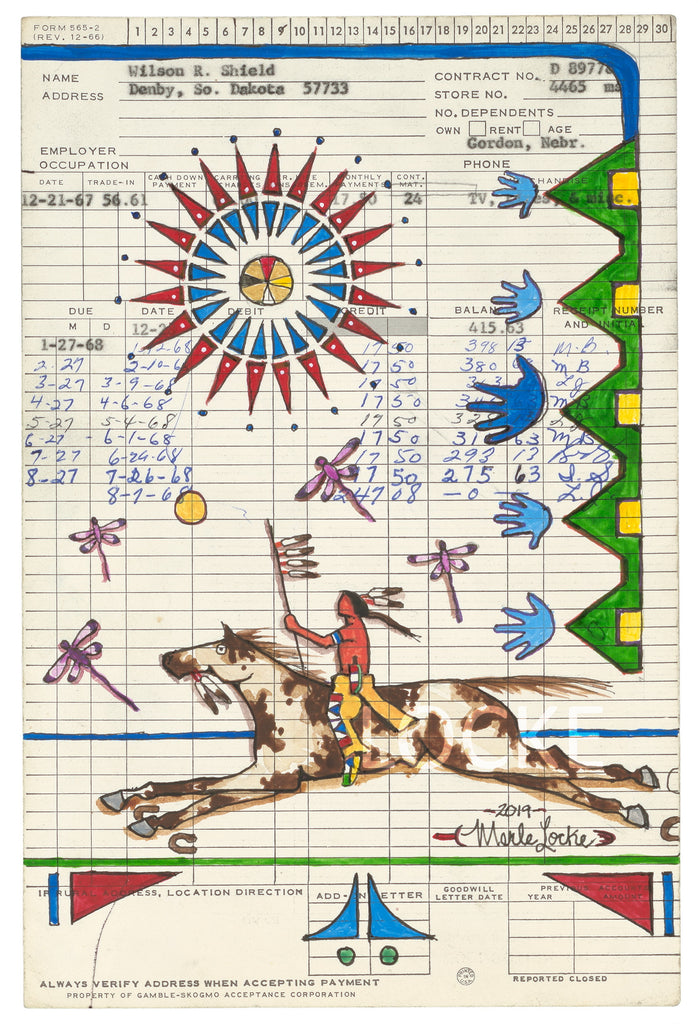 FORM 565-2
(REV. 12-66)
1 2 3 4 5 6 7 8 9 10 11 12 13 14 15 16 17 18 19 20 21 22 23 24 25 26 27 28 29 30
NAME Wilson R. Shield CONTRACT NO. D 89778
ADDRESS Denby, So. Dakota 57733 STORE NO. 4465
NO. DEPENDENTS
OWN RENT AGE
EMPLOYER Gordon, Nebr.
OCCUPATION PHONE
DATE TRADE-IN CASH DOWN PAYMENT CARRYING MONTHLY PAYMENTS CONT. MAT.
12-21-67 56.61 17.50 24 TV, & Misc.
DUE DATE DEBIT CREDIT BALAN RECEIPT NUMBER
M D 12-2 415.63 AND INITIAL
1-27-68 1-12-68 17 50 398 13 M.B.
2-27 2-10-6 17 50 380 MB
3-27 3-9-68 17 50
4-27 4-6-68 17 50 MB
5-27 5-4-68 17 50
6-27 6-1-68 17 50 31 63 MB
7-27 6-24-68 17 50 293 13
8-27 7-26-68 17 50 275 63
8-7-68 247 08 -0-
LOCKE
-2019-
Merle Locke
IF RURAL ADDRESS, LOCATION DIRECTION ADD-ON LETTER GOODWILL LETTER DATE PREVIOUS ACCOUNT
YEAR AMOUNT
ALWAYS VERIFY ADDRESS WHEN ACCEPTING PAYMENT REPORTED CLOSED
PROPERTY OF GAMBLE-SKOGMO ACCEPTANCE CORPORATION